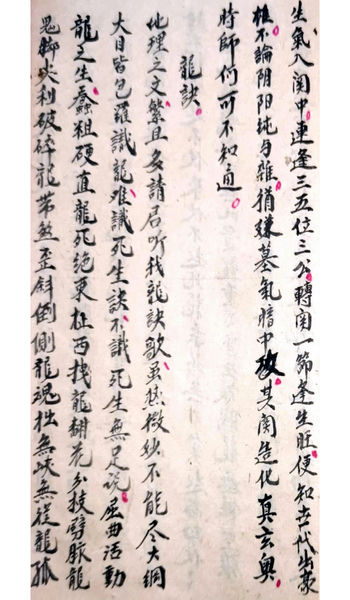 生氣入関中連逢三五位三公轉関一節逢生旺便知古代出豪
雄不論阴阳纯与雜猶嫌墓氣暗中攻其関造化真玄奥
時師何可不知通
龍訣
地理之文繁且多請君听我龍訣歌虽然微妙不能尽大綱
大目皆包羅識龍难識死生談不識死生無足説屈曲活動
龍之生蠢粗硬直龍死絕東扯西拽龍翻花分枝劈脉龍
鬼脚尖利破碎龍帶煞歪斜倒側龍魂拙無峽無從龍孤